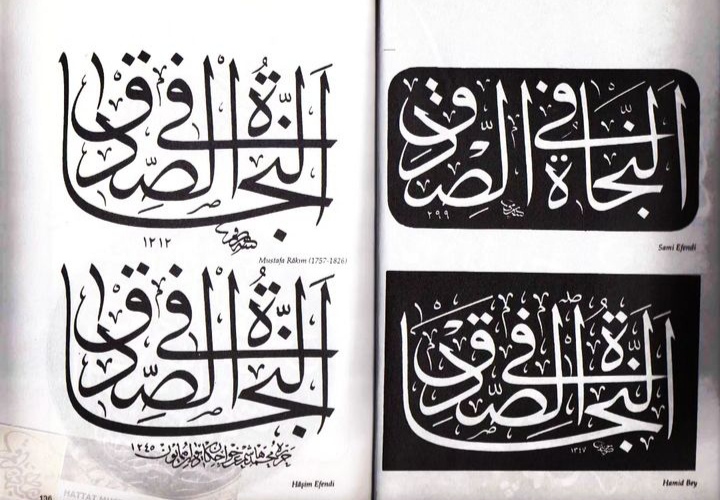 النجاة في الصدق
١٢١٢
Mustafa Râkım (1757-1826)
النجاة في الصدق
١٢٤٥
Hâşim Efendi
136
HATTAT
النجاة في الصدق
٢٩٩
Sami Efendi
النجاة في الصدق
Hamid Bey